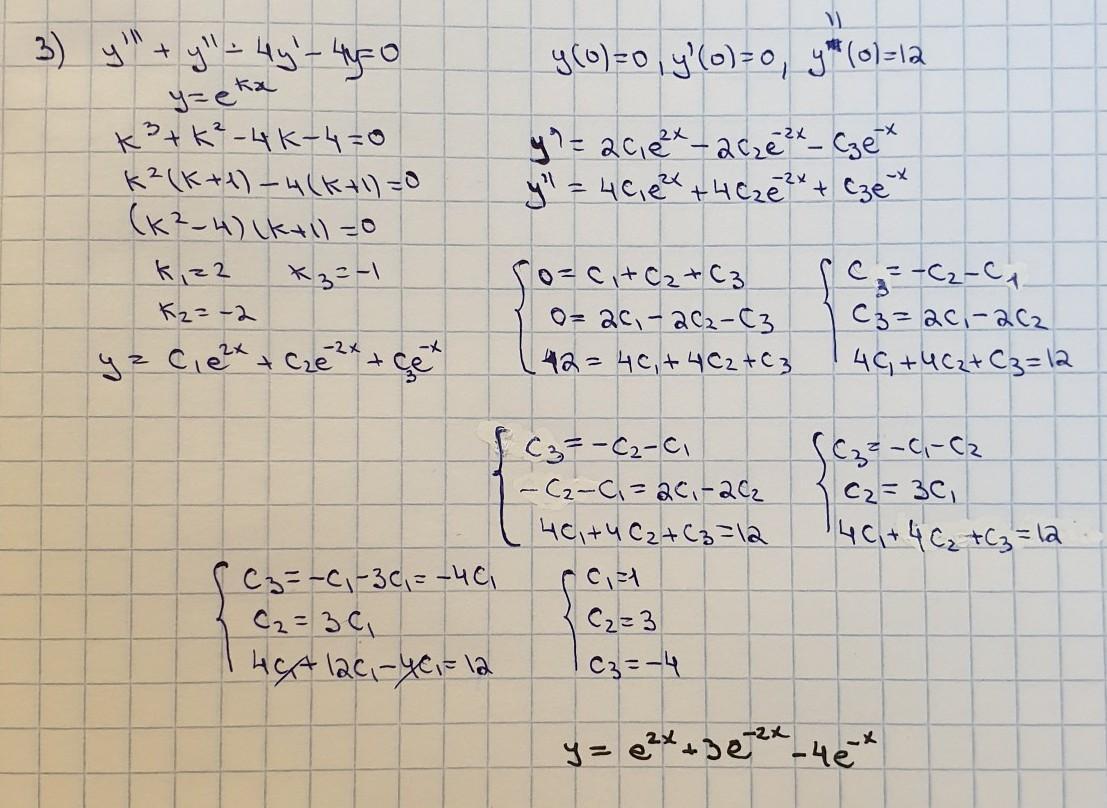 3) y''' + y'' - 4y' - 4y=0
y(0)=0, y'(0)=0, y''(0)=12
y=e^{kx}
k³+k²-4k-4=0
k²(k+1)-4(k+1)=0
(k²-4)(k+1)=0
k₁=2 k₃=-1
k₂=-2
y= C₁e^{2x}+C₂e^{-2x}+C₃e^{-x}
y'= 2C₁e^{2x}-2C₂e^{-2x}-C₃e^{-x}
y''= 4C₁e^{2x}+4C₂e^{-2x}+C₃e^{-x}
{ 0=C₁+C₂+C₃
0=2C₁-2C₂-C₃
12=4C₁+4C₂+C₃
{ C₃=-C₂-C₁
C₃=2C₁-2C₂
4C₁+4C₂+C₃=12
{ C₃=-C₂-C₁
-C₂-C₁=2C₁-2C₂
4C₁+4C₂+C₃=12
{ C₃=-C₁-C₂
C₂=3C₁
4C₁+4C₂+C₃=12
{ C₃=-C₁-3C₁=-4C₁
C₂=3C₁
4C₁+12C₁-4C₁=12
{ C₁=1
C₂=3
C₃=-4
y= e^{2x}+3e^{-2x}-4e^{-x}